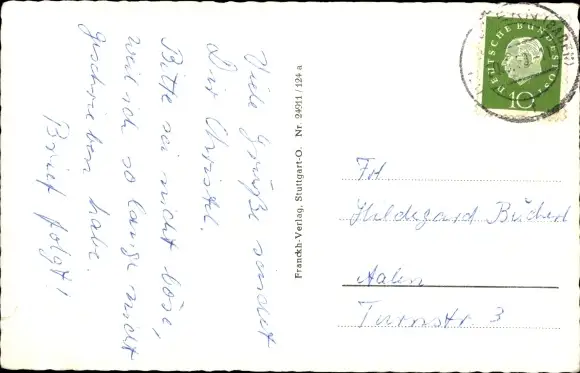 Viele Grüße sendet
Dir Christel.
Bitte sei nicht böse,
weil ich so lange nicht
geschrieben habe.
Brief folgt!
Franckh-Verlag, Stuttgart-O. Nr. 24911/124 a
DEUTSCHE BUNDESPOST
10
Frl.
Hildegard Bücherl
Aalen
Turnstr. 3